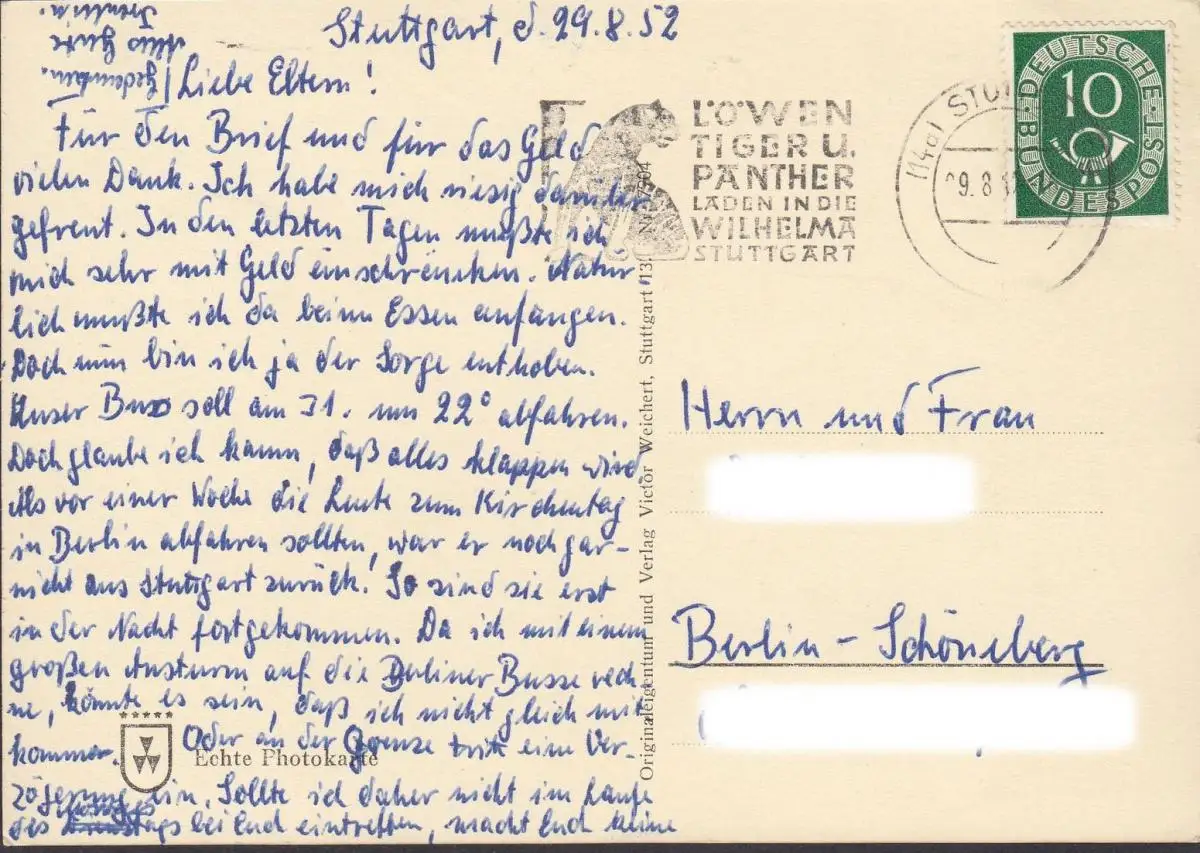 Stuttgart, d. 29.8.52
Liebe Eltern!
Für den Brief und für das Geld
vielen Dank. Ich habe mich riesig darüber
gefreut. In den letzten Tagen mußte ich
mich sehr mit Geld einschränken. Natür
lich mußte ich da beim Essen anfangen.
Doch nun bin ich ja der Sorge enthoben.
Unser Bus soll am 31. um 22° abfahren.
Doch glaube ich kaum, daß alles klappen wird
Als vor einer Woche die Leute zum Kirchentag
in Berlin abfahren sollten, war er noch gar-
nicht aus Stuttgart zurück! So sind sie erst
in der Nacht fortgekommen. Da ich mit einem
großen Ansturm auf die Berliner Busse rech
ne, könnte es sein, daß ich nicht gleich mit
komme. Oder an der Grenze tritt eine Ver-
zögerung ein. Sollte ich daher nicht im Laufe
des Montags bei Euch eintreffen, macht Euch keine
Gedanken.
Alles Gute
Echte Photokarte
Originaleigentum und Verlag Victor Weichert, Stuttgart 13
LÖWEN
TIGER U.
PANTHER
LADEN IN DIE
WILHELMA
STUTTGART
(14a) STU
9.8
DEUTSCHE
BUNDESPOST
10
Herrn und Frau
Berlin-Schöneberg